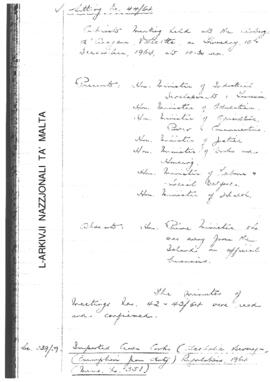 Sitting No. 44/64
Cabinet Meeting held at the Auberge
d'Aragon Valletta on Thursday 10th
December, 1964, at 10.30 am.
Present: Hon. Minister of Industrial
Development & Tourism
Hon. Minister of Education
Hon. Minister of
Power & Communications
Hon. Minister of Justice
Hon. Minister of Works and
Housing
Hon. Minister of Labour &
Social Welfare
Hon. Minister of Health
Absent: Hon. Prime Minister who
was away from the
Island on official
business.
The minutes of
Meetings Nos. 42 - 43/64 were read
and confirmed.
Imported (Alcoholic Beverages)
(Exemption from duty) Regulations 1964
(Memo. No. 358)
L-ARKIVJI NAZZJONALI TA' MALTA